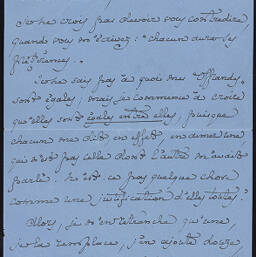 Je ne crois pas devoir vous contredire
quand vous m'écrivez : "chacun aura les
préférences."
Je ne sais pas à quoi mes "Offrandes"
sont égales ; mais je commence à croire
qu'elles sont égales entre elles, puisque
chacun me dit en effet en aimer une,
qui n'est pas celle dont l'autre m'avait
parlé. N'est-ce pas quelque chose
comme une justification d'elles toutes ?
Alors, si j'en retranche qu'une,
je la remplace, j'en ajoute douze,